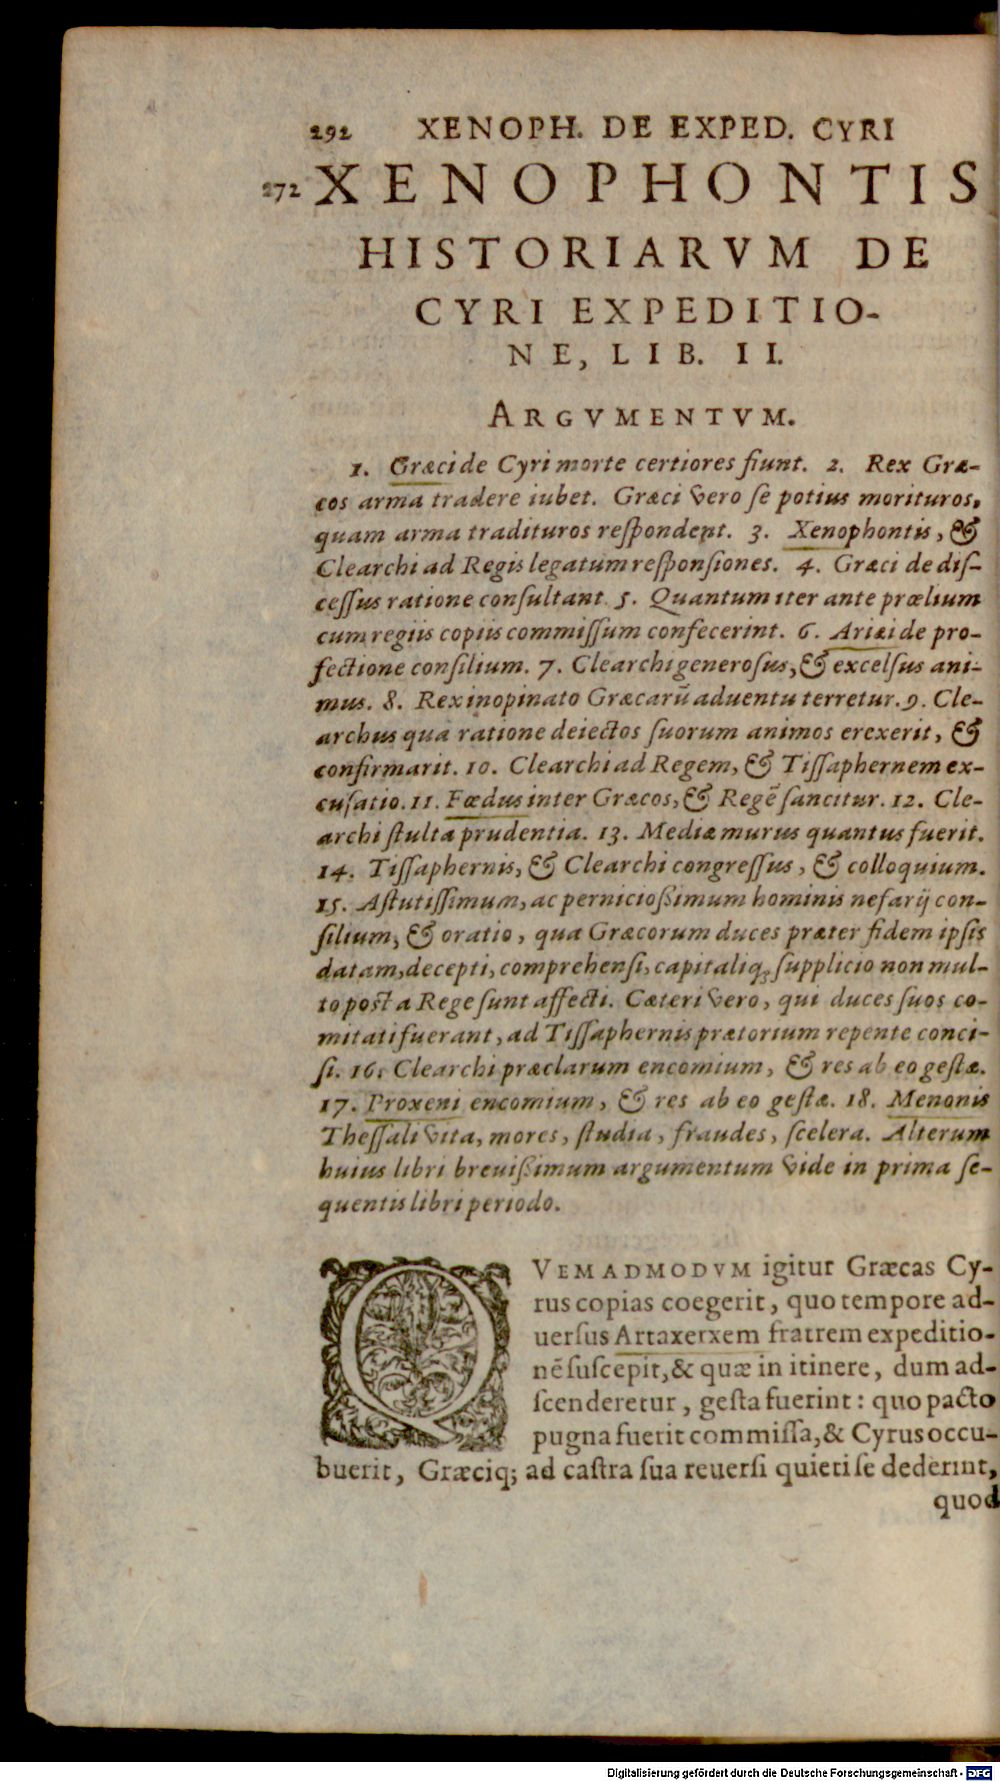 292 XENOPH. DE EXPED. CYRI
272 XENOPHONTIS
HISTORIARVM DE
CYRI EXPEDITIO-
NE, LIB. II.
ARGVMENTVM.
1. Græci de Cyri morte certiores fiunt. 2. Rex Græ-
cos arma tradere iubet. Græci vero se potius morituros,
quam arma tradituros respondent. 3. Xenophontis, &
Clearchi ad Regis legatum responsiones. 4. Græci de dis-
cessus ratione consultant. 5. Quantum iter ante prœlium
cum regiis copiis commissum confecerint. 6. Ariæi de pro-
fectione consilium. 7. Clearchi generosus, & excelsus ani-
mus. 8. Rex inopinato Græcarũ aduentu terretur. 9. Cle-
archus qua ratione deiectos suorum animos erexerit, &
confirmarit. 10. Clearchi ad Regem, & Tissaphernem ex-
cusatio. 11. Fœdus inter Græcos, & Regẽ sancitur. 12. Cle-
archi stulta prudentia. 13. Mediæ murus quantus fuerit.
14. Tissaphernis, & Clearchi congressus, & colloquium.
15. Astutissimum, ac perniciosißimum hominis nefarij con-
silium, & oratio, qua Græcorum duces præter fidem ipsis
datam, decepti, comprehensi, capitaliq; supplicio non mul-
to post a Rege sunt affecti. Cæteri vero, qui duces suos co-
mitati fuerant, ad Tissaphernis prætorium repente conci-
si. 16. Clearchi præclarum encomium, & res ab eo gestæ.
17. Proxeni encomium, & res ab eo gestæ. 18. Menonis
Thessali vita, mores, studia, fraudes, scelera. Alterum
huius libri breuißimum argumentum vide in prima se-
quentis libri periodo.
QVEMADMODVM igitur Græcas Cy-
rus copias coegerit, quo tempore ad-
uersus Artaxerxem fratrem expeditio-
nẽ suscepit, & quæ in itinere, dum ad-
scenderetur, gesta fuerint: quo pacto
pugna fuerit commissa, & Cyrus occu-
buerit, Græciq; ad castra sua reuersi quieti se dederint,
quod
Digitalisierung gefördert durch die Deutsche Forschungsgemeinschaft - DFG